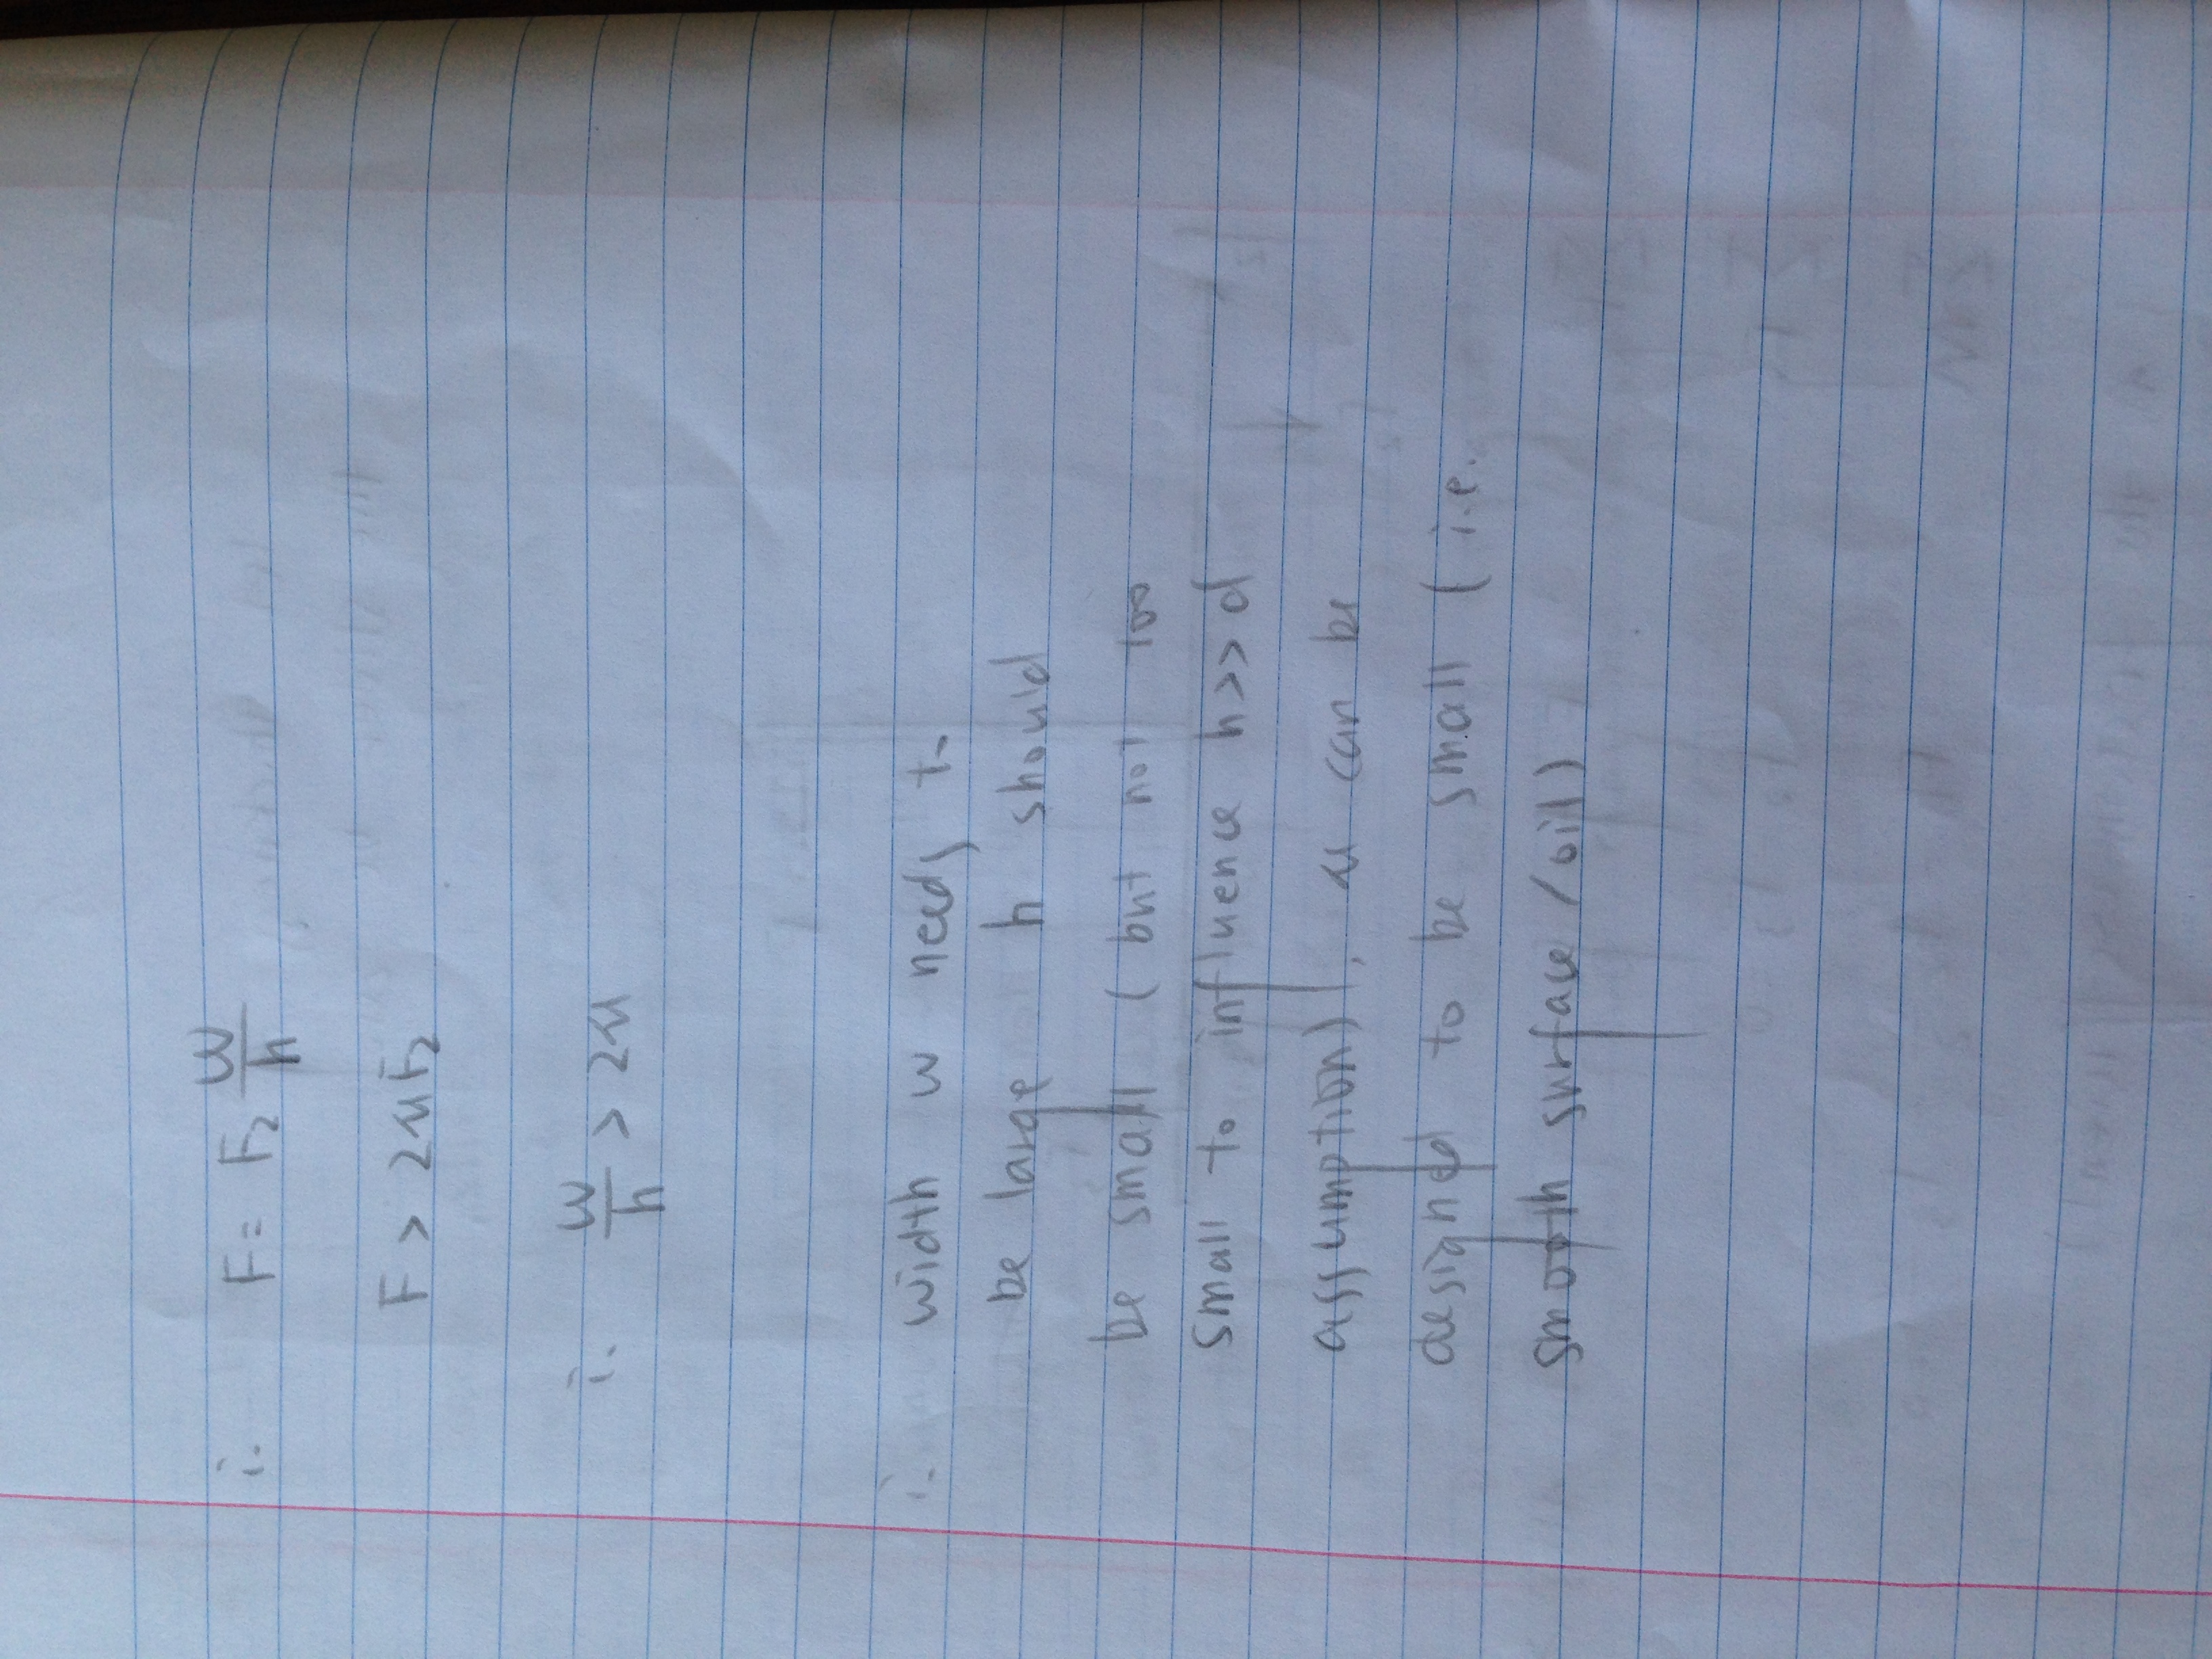 i. F = F₂ w/h
F > 2μF₂
i. w/h > 2μ
i. width w needs to
be large h should
be small (but not too
small to influence h>>d
assumption), μ can be
designed to be small (i.e.
smooth surface/oil)